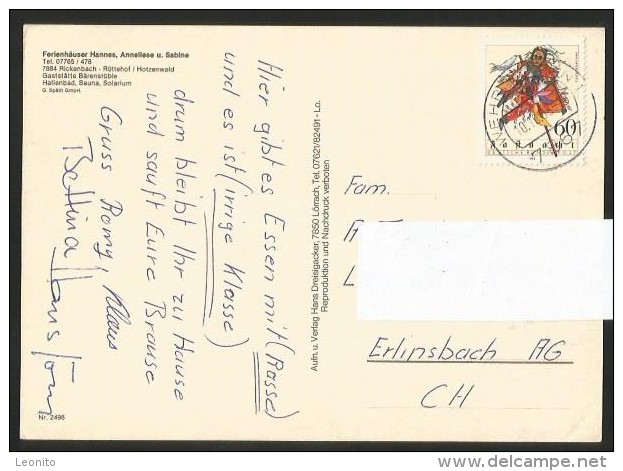 Ferienhäuser Hannes, Anneliese u. Sabine
Tel. 07765 / 476
7884 Rickenbach - Rüttehof / Hotzenwald
Gaststätte Bärenstüble
Hallenbad, Sauna, Solarium
G. Späth GmbH.
Hier gibt es Essen mit (Rasse)
und es ist (irrige Klasse)
drum bleibt Ihr zu Hause
und sauft Eure Brause
Gruss Romy, Klaus
Bettina
Nr. 2498
Aufn. u. Verlag Hans Dreisigacker, 7850 Lörrach, Tel. 07621/82491 - Lo.
Reproduktion und Nachdruck verboten
60
WEHR
Fam.
Erlinsbach AG
CH
Leonito
delcampe.net